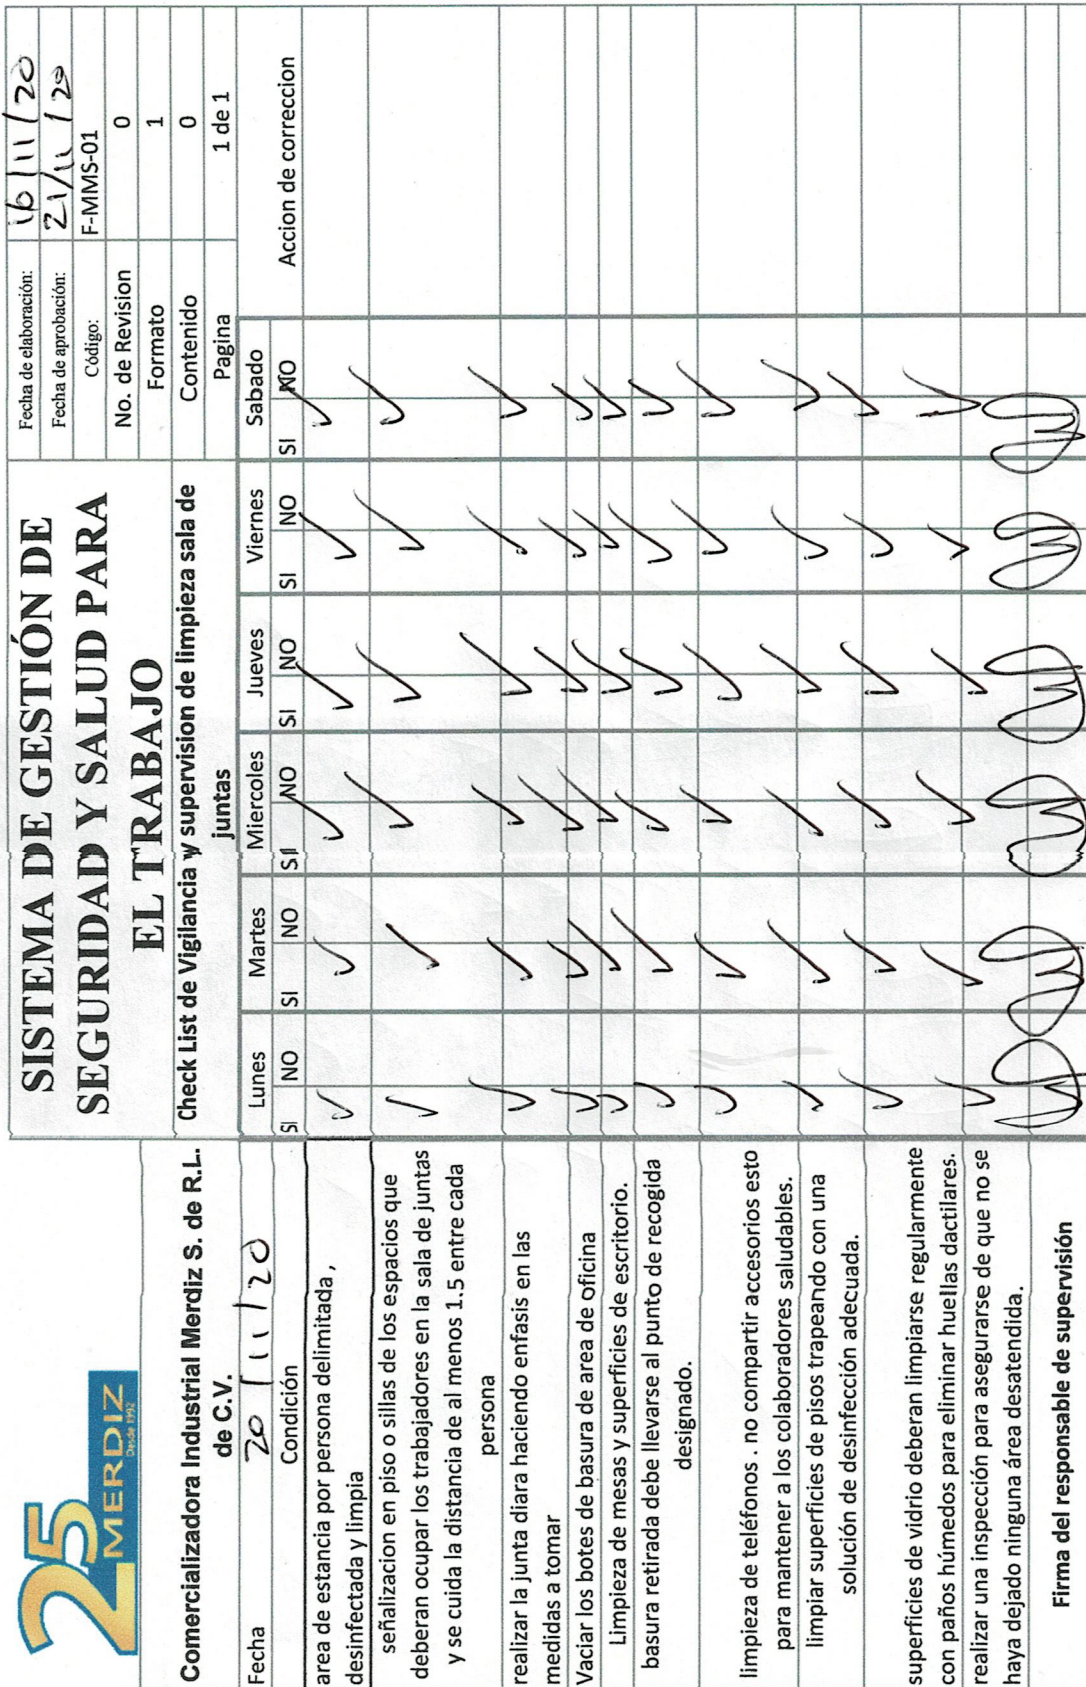 25
MERDIZ
Desde 1992
SISTEMA DE GESTIÓN DE
SEGURIDAD Y SALUD PARA
EL TRABAJO
Fecha de elaboración: 16/11/20
Fecha de aprobación: 21/11/20
Código: F-MMS-01
No. de Revision 0
Formato 1
Contenido 0
Pagina 1 de 1
Comercializadora Industrial Merdiz S. de R.L.
de C.V.
Check List de Vigilancia y supervision de limpieza sala de
juntas
Fecha 20/11/20
Lunes Martes Miercoles Jueves Viernes Sabado
Accion de correccion
Condición SI NO SI NO SI NO SI NO SI NO SI NO
area de estancia por persona delimitada ,
desinfectada y limpia
señalizacion en piso o sillas de los espacios que
deberan ocupar los trabajadores en la sala de juntas
y se cuida la distancia de al menos 1.5 entre cada
persona
realizar la junta diara haciendo enfasis en las
medidas a tomar
Vaciar los botes de basura de area de oficina
Limpieza de mesas y superficies de escritorio.
basura retirada debe llevarse al punto de recogida
designado.
limpieza de teléfonos . no compartir accesorios esto
para mantener a los colaboradores saludables.
limpiar superficies de pisos trapeando con una
solución de desinfección adecuada.
superficies de vidrio deberan limpiarse regularmente
con paños húmedos para eliminar huellas dactilares.
realizar una inspección para asegurarse de que no se
haya dejado ninguna área desatendida.
Firma del responsable de supervisión